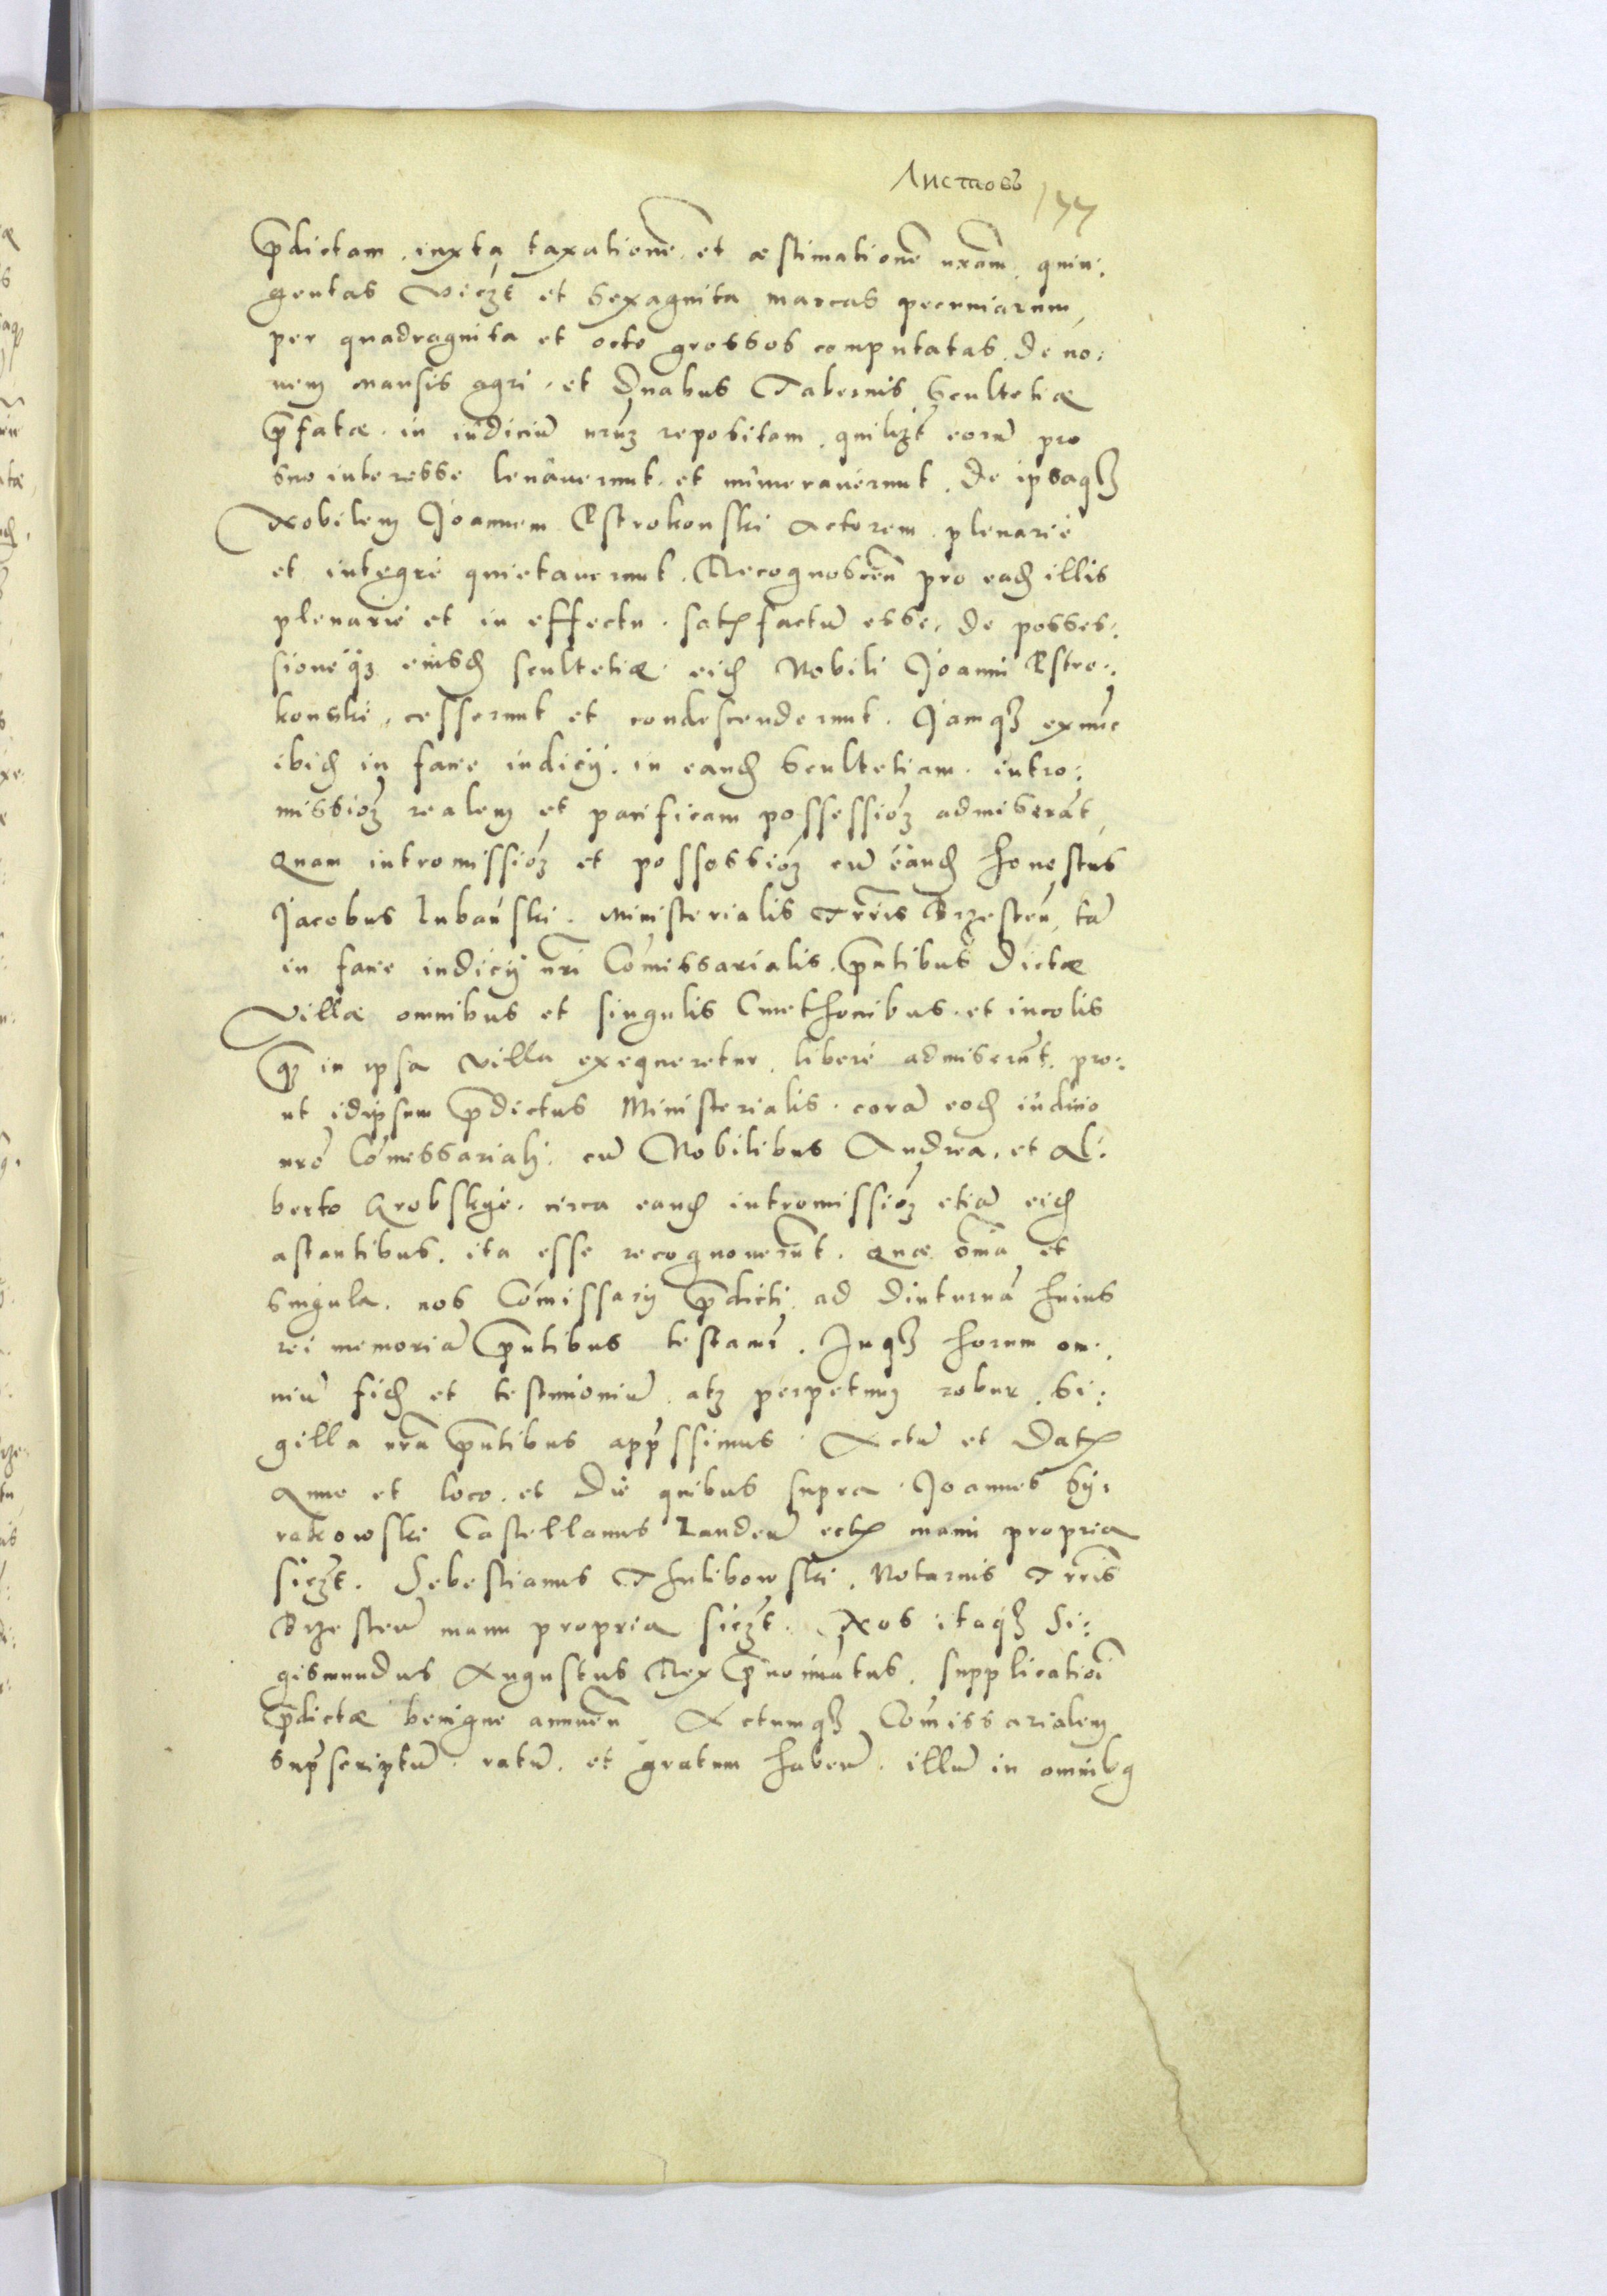 Листовъ
177
p̄dictam iuxta taxationē et æstimationē nr̄am quin:
gentas viczt et sexaginta marcas pecuniarum
per quadraginta et octo grossos computatas De no:
uem mansis agri et Duabus Tabernis Scultetiæ
p̄fatæ in iudiciū nrūz repositam quilꝫt eorū pro
suo interesse leuauerunt et numerauerunt De ipsaqꝫ
Nobilem Joannem Ostrokonski Actorem plenarie
et integre quietauerunt Recognoscēn pro eadꝫ illis
plenarie et in effectu satꝭfactū esse De posses:
sioneqꝫ eiusdꝫ scultetiæ eidꝫ Nobili Joanni Ostro:
konski cesserunt et condescenderunt Jamqꝫ exnūc
ibidꝫ in facie iudicij in eandꝫ Scultetiam intro:
missioꝫ realem et pacificam possessioꝫ admiserāt
Quam intromissioꝫ et possessioꝫ cū eandꝫ honestus
Jacobus Lubanski Ministerialis Trr̄is Brzesteń tā
in facie iudicij nr̄i Comissarialis p̄ntibus Dictæ
Villæ omnibus et singulis Cmethonibus et incolis
qꝫ in ipsa villa exequeretur libere admiserūt pro:
ut idipsum p̄dictus Ministerialis corā eodꝫ iudicio
nrō Comessariali cū Nobilibus Andrea et Al:
berto Grobskye circa eandꝫ intromissioꝫ etiā eidꝫ
astantibus ita esse recognouerūt Quæ oīna et
singula nos Comissarij p̄dicti ad Diuturnā huius
rei memoriā p̄ntibus testamr Inqꝫ horum om:
niū fidꝫ et testimoniū atqꝫ perpetuum robur Si:
gilla nr̄a p̄ntibus app̄ssimus Actū et Datꝭ
Anno et loco et Die quibus supra Joannes Sy:
rakowski Castellanus Landeń ectꝭ manu propria
sſczt Sebestianus Thulibowski Notarius Trr̄is
Brzesteń manu propria sſczt Nos itaqꝫ Si:
gismundus Augustus Rex p̄nominatus supplicationi
p̄dictæ benigne annuēn Actumqꝫ Comissarialem
sup̄scriptū ratū et gratum habeń illū in omnibꝯ